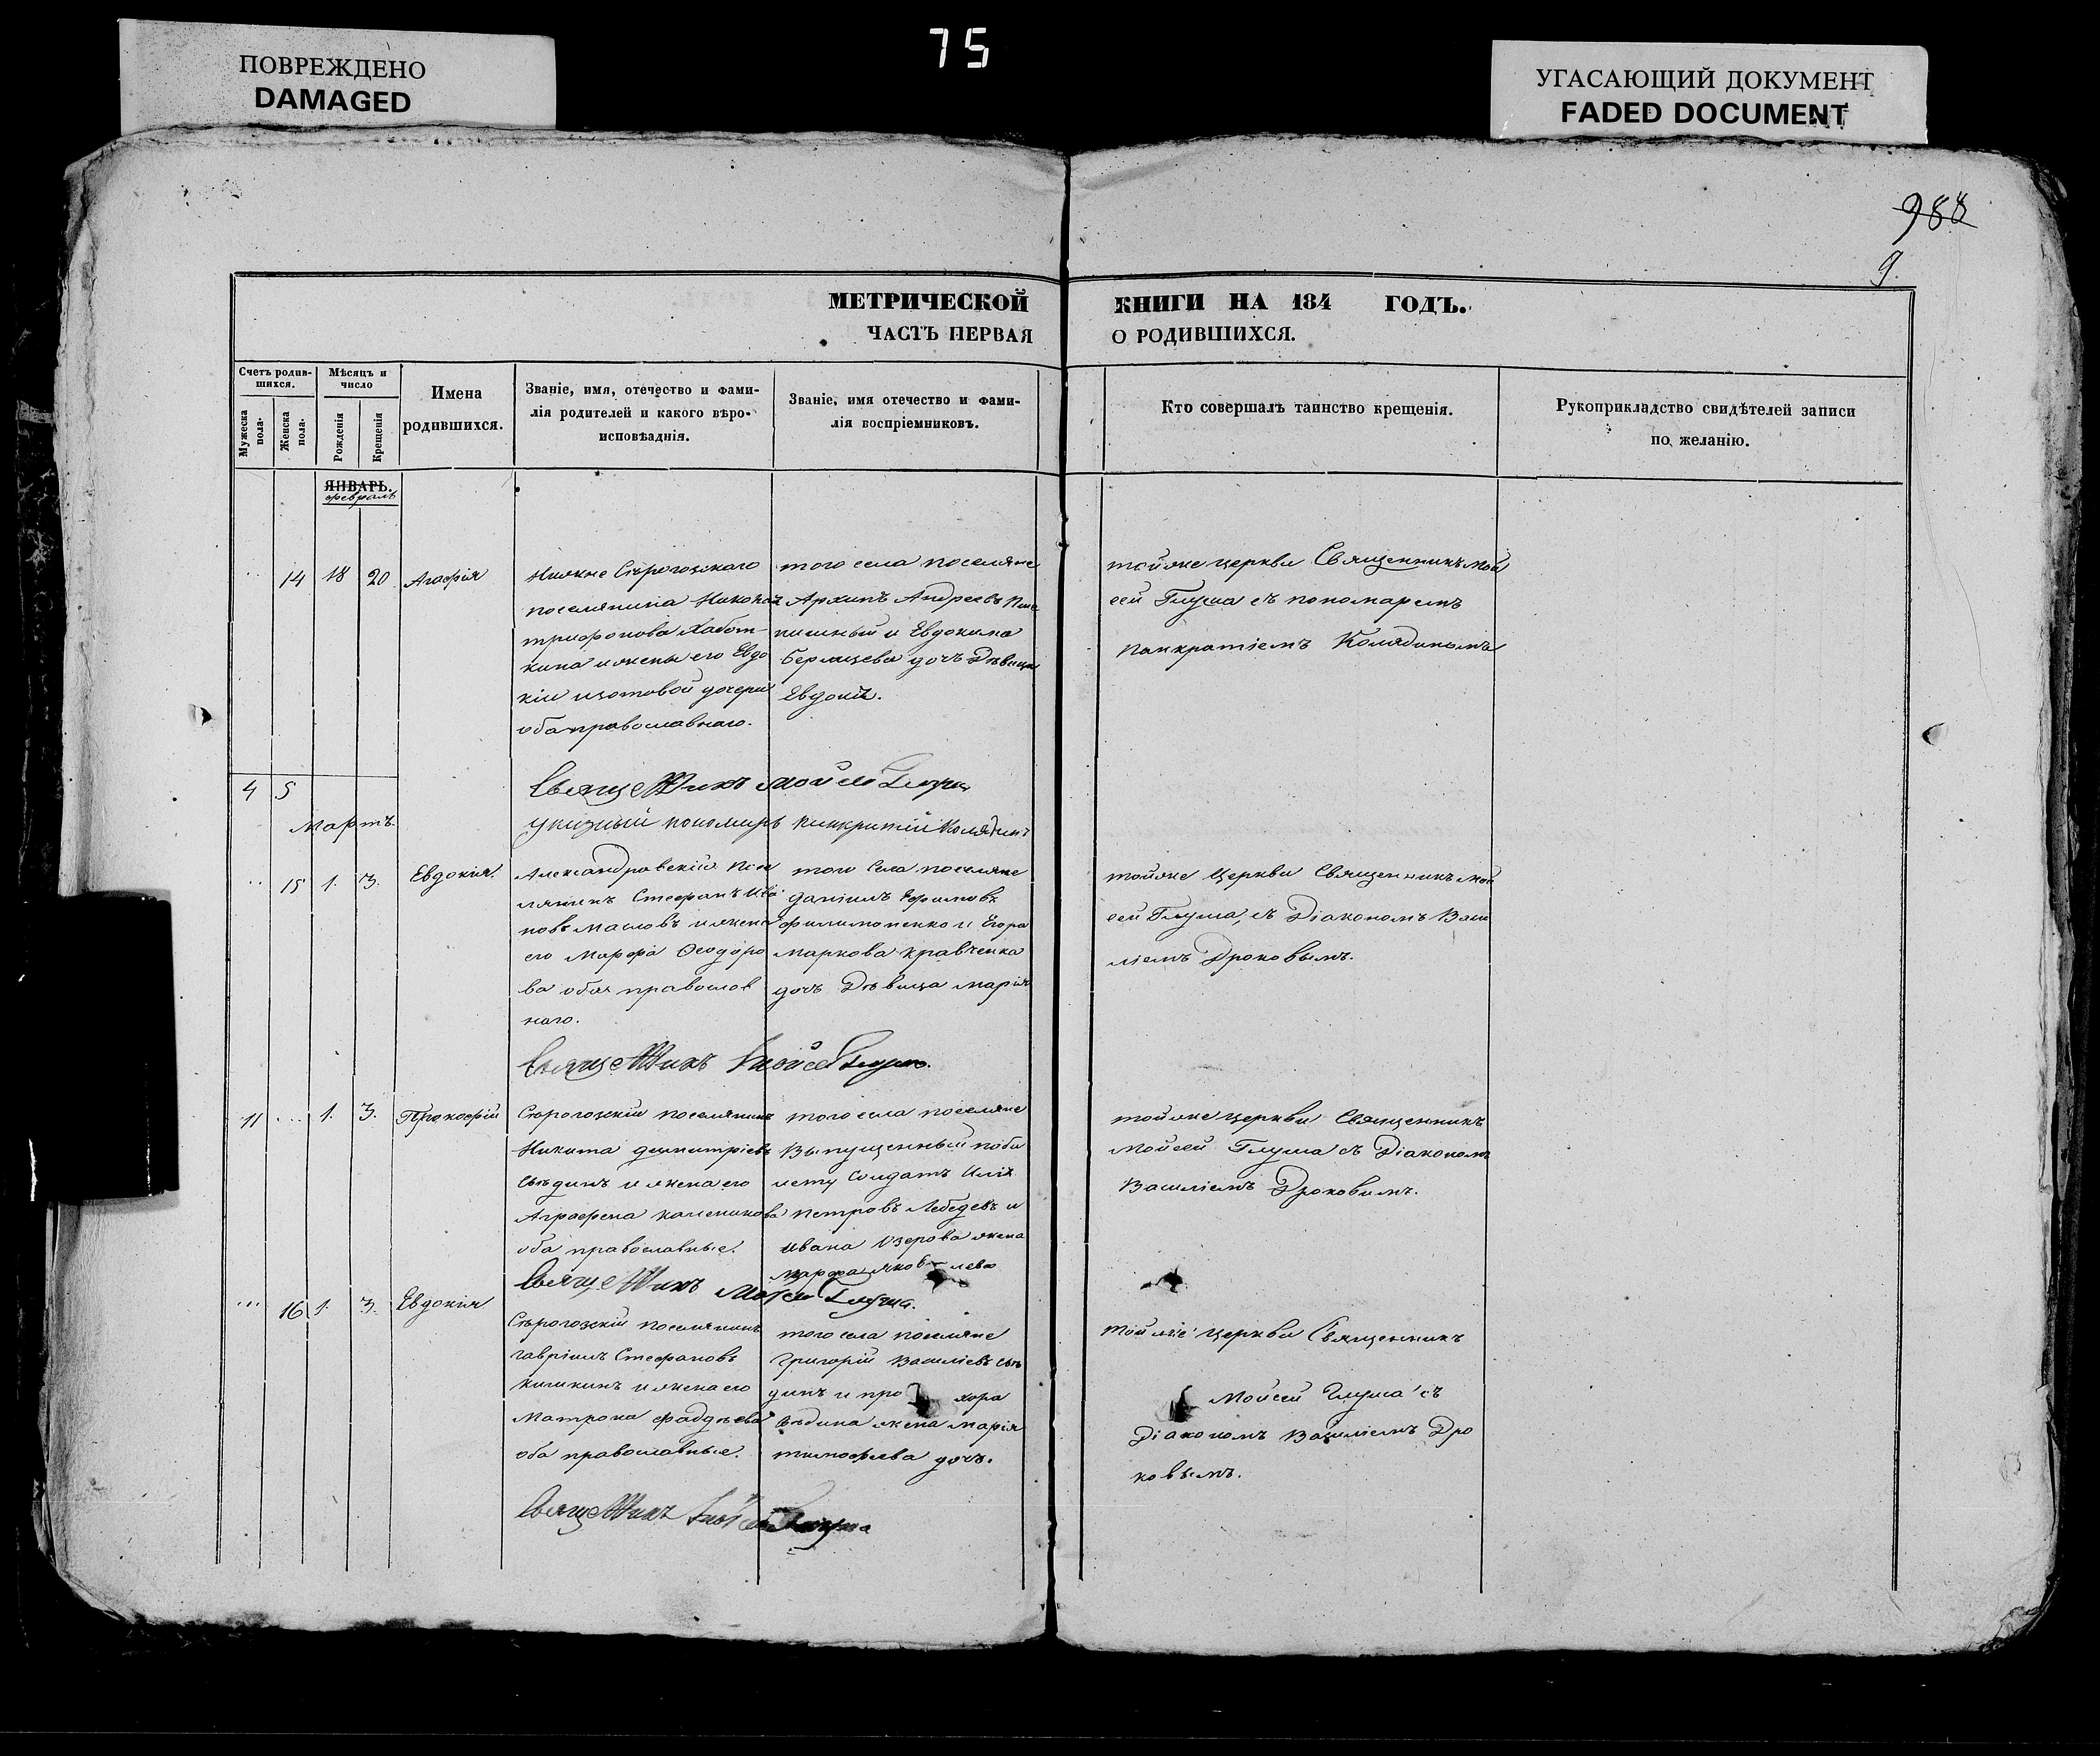 ПОВРЕЖДЕНО
DAMAGED
75
УГАСАЮЩИЙ ДОКУМЕНТ
FADED DOCUMENT
988
9
МЕТРИЧЕСКОЙ КНИГИ НА 184 ГОДЪ.
ЧАСТЬ ПЕРВАЯ О РОДИВШИХСЯ.
Счетъ родив-
шихся.
Мужеска
пола.
Женска
пола.
Мѣсяцъ и
число
Рожденія
Крещенія
Имена
родившихся.
Званіе, имя, отечество и фами-
лія родителей и какого вѣро-
исповѣаднія.
Званіе, имя отечество и фами-
лія воспріемниковъ.
Кто совершалъ таинство крещенія.
Рукоприкладство свидѣтелей записи
по желанію.
ЯНВАРЬ.
февраль
14 18 20 Агафія
Нижне Сѣрогозскаго
поселянина
трифонова
кина и жены его Евдо
кіи изотовой дочери
оба православнаго.
того села поселяне
Архипъ Андреевъ
и Евдокима
дочь Дѣвица
Евдокія.
тойже церкви Священникъ Мои
сей Глуша съ пономаремъ
Панкратіемъ Колядинымъ
4 5
Священникъ Моисей Глуша
указный пономарь Панкратій Колядинъ
Мартъ.
15 1. 3. Евдокія.
Александровскій Посе
лянинъ Стефанъ Ива
новъ Масловъ и жена
его Марфа Феодоро
ва оба православ
наго.
того Села поселяне
Даніилъ Ефимовъ
Филимоненко и Егора
Маркова Кравченка
дочь Дѣвица Марія
тойже Церкви Священникъ Мои
сей Глуша, съ Діакономъ Васи
ліемъ Дроковымъ.
Священникъ Моисей Глуша.
11 ... 1. 3. Прокофій
Сѣрогозскій поселянинъ
Никита димитріевъ
Сѣдинъ и жена его
Агрофена
оба православные.
того села поселяне
Выпущенный по би
лету Солдатъ Илія
Петровъ Лебедевъ и
Ивана Озерова жена
Марфа яковлева
тойже церкви Священникъ
Моисей Глуша съ Діакономъ
Василіемъ Дроковымъ.
Священникъ Моисей Глуша.
... 16 1. 3. Евдокія
Сѣрогозскій поселянинъ
гавріилъ Стефановъ
Кишкинъ и жена его
Матрона фаддѣева
оба православные.
того села поселяне
Григорій Василіевъ Сѣ
динъ и про хора
жена Марія
тимофеева дочь.
тойже церкви Священникъ
Моисей Глуша съ
Діакономъ Василіемъ Дро
ковымъ.
Священникъ Моисей Глуша